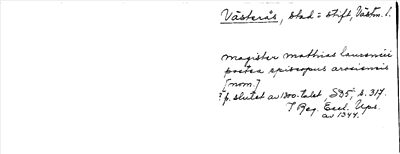 Västerås, stad = stift, Västm. l.
magister mathias laurencii
postea episcopus arosiensis
[nom.]
? p. slutet av 1300-talet, SD5, s. 317.
I Reg. Eccl. Ups.
av 1344.